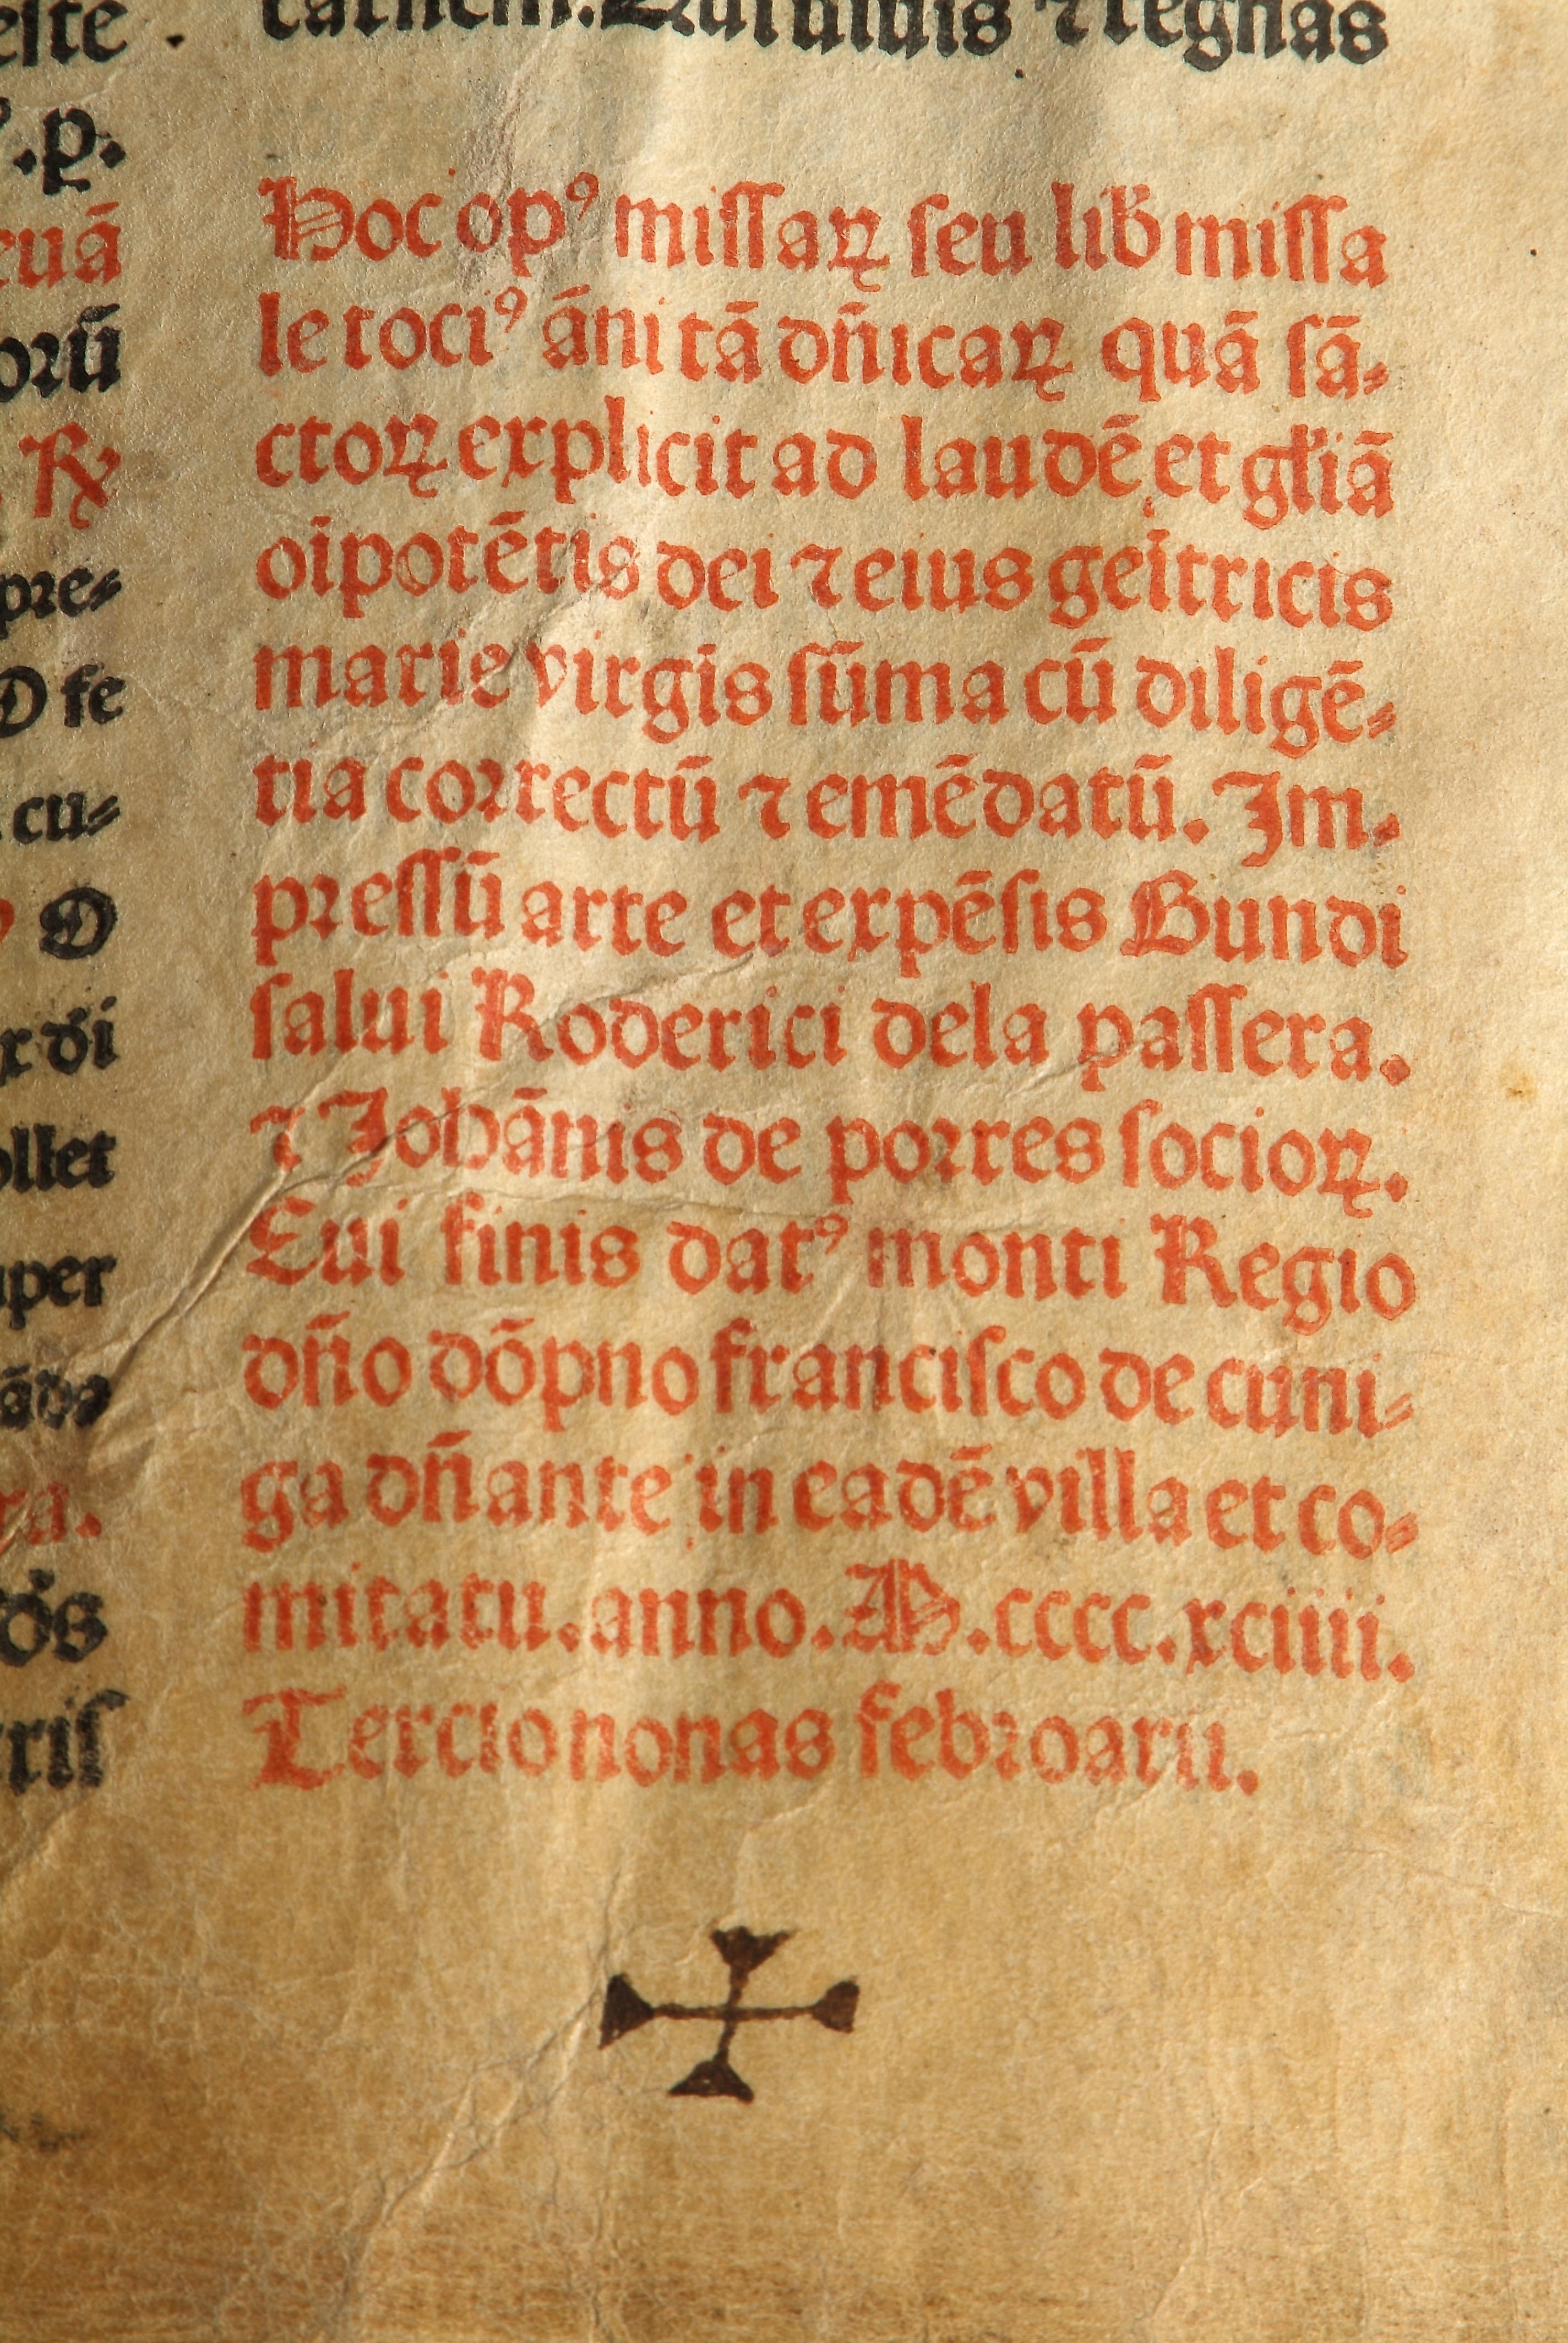 este
carnem. Qui viuis ⁊ regnas
.ꝑ.
euā
oꝛū
℞
pꝛe⸗
D fe
cu⸗
D
ollet
uper
ra.
Hoc opꝰ missaꝝ seu lib̄ missa
le tociꝰ āni tā dn̄icaꝝ quā sā⸗
ctoꝝ explicit ad laudē et gl̄iā
oīpotētis dei ⁊ eius geītricis
marie virgīs sūma cū diligē⸗
tia coꝛrectū ⁊ emēdatū. Im⸗
pꝛessū arte et expēsis Gundi
salui Roderici dela passera.
⁊ Johānis de poꝛres socioꝝ.
Cui finis datꝰ monti Regio
dn̄o dōpno francisco de cuni⸗
ga dn̄ante in eadē villa et co⸗
mitatu. anno. M.cccc.xciiii.
Tercio nonas febꝛoarii.